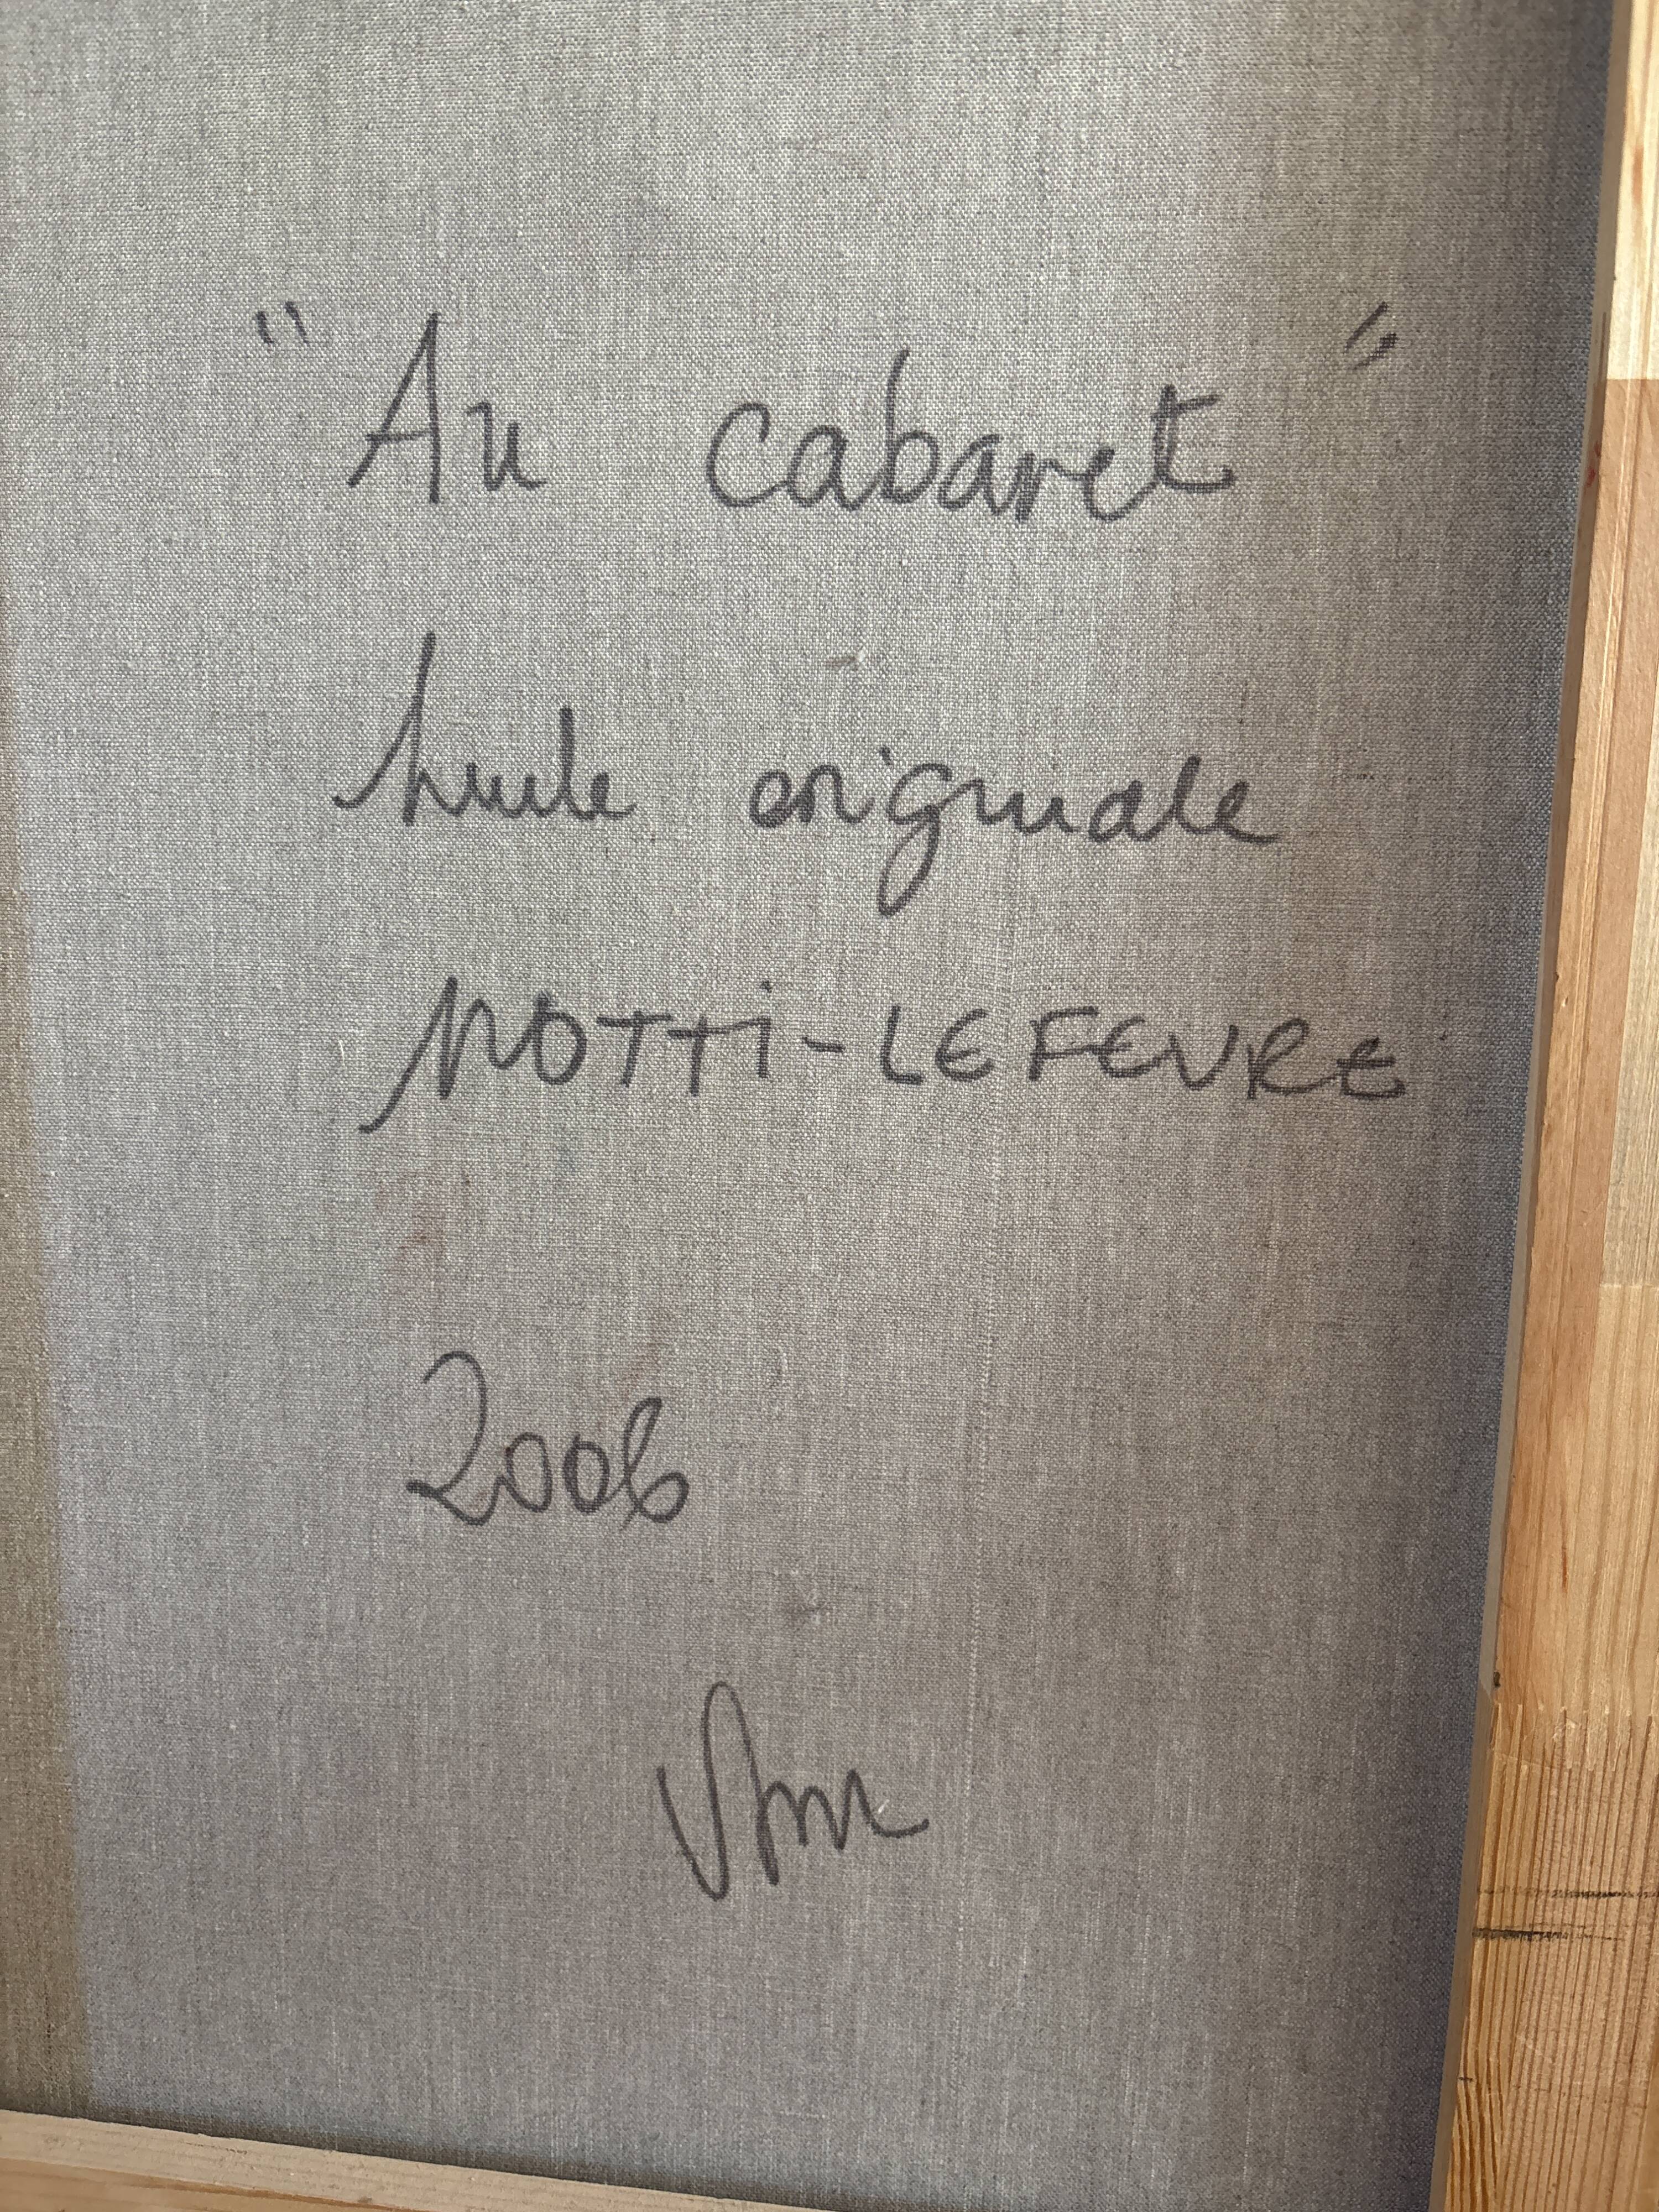 "Au cabaret"
huile originale
NOTTi-LEFEVRE
2006